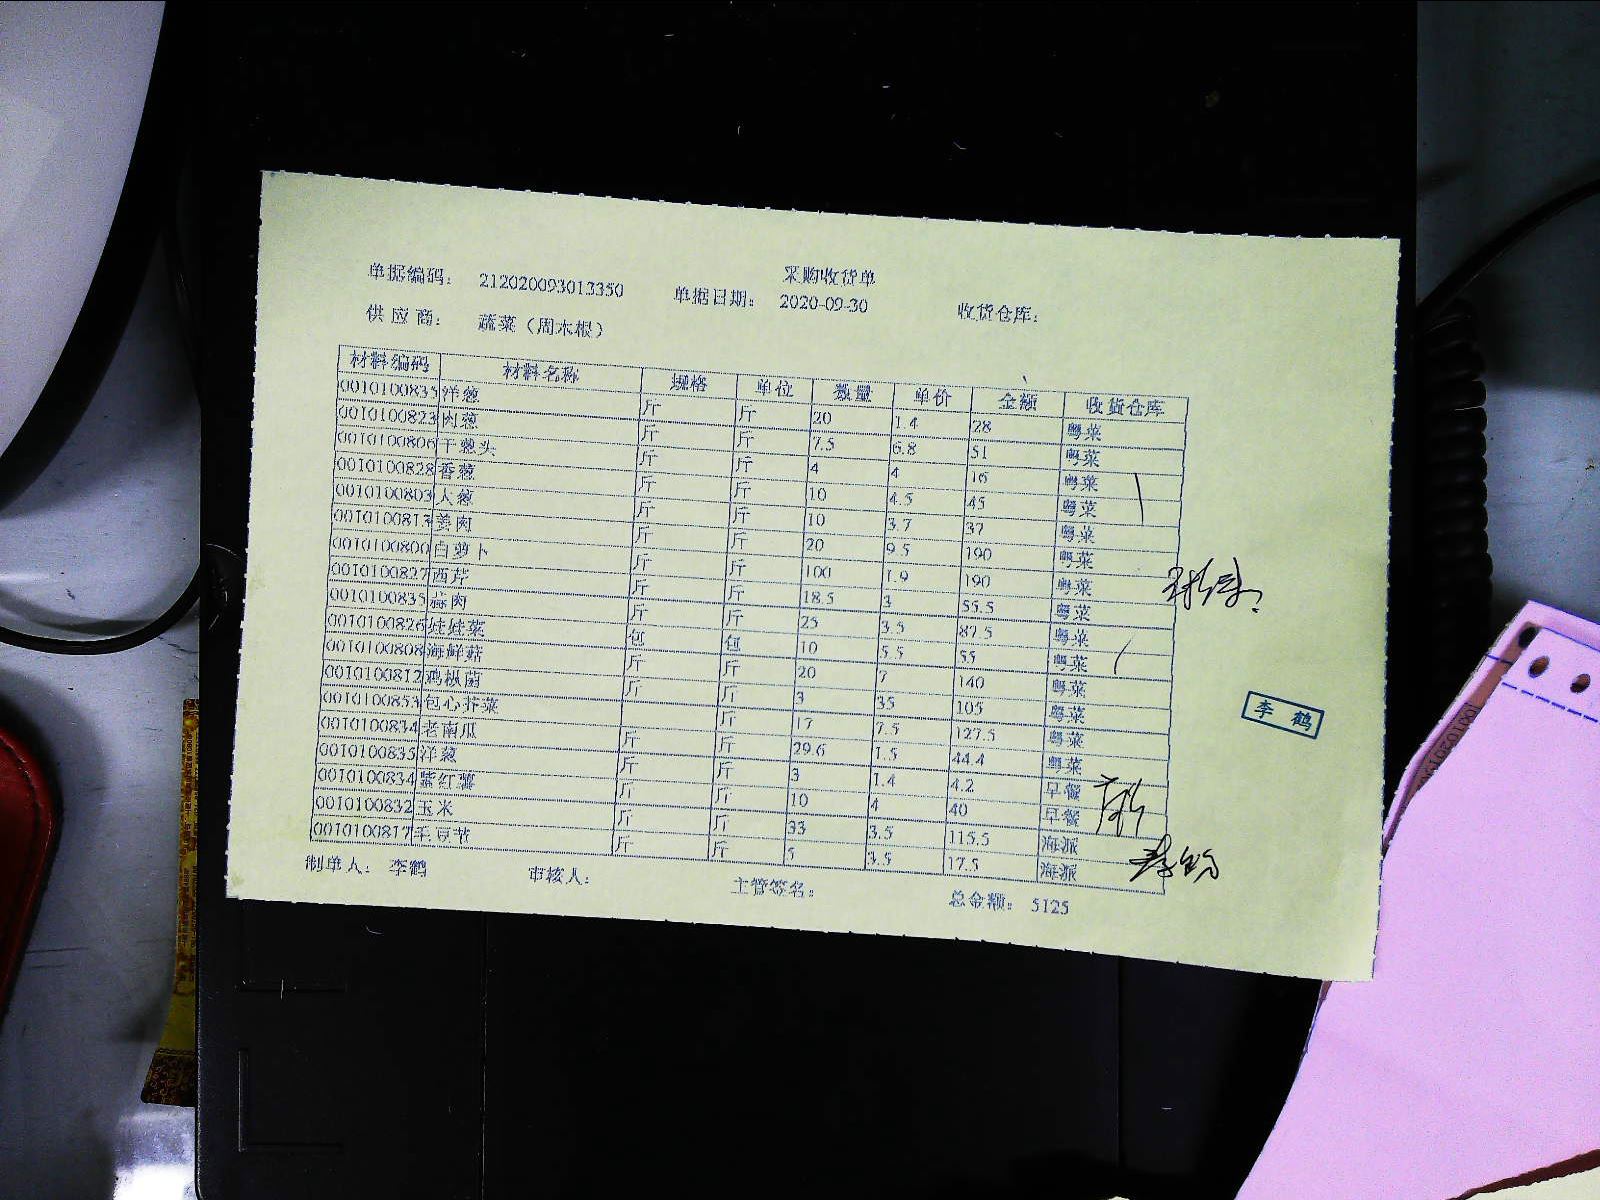 采购收货单
单据编码： 212020093013350 单据日期： 2020-09-30 收货仓库：
供应商： 蔬菜（周木根）
材料编码 材料名称 规格 单位 数量 单价 金额 收货仓库
洋葱 斤 斤 20 1.4 28 粤菜
0010100823 肉葱 斤 斤 7.5 6.8 51 粤菜
0010100806 干葱头 斤 斤 4 4 16 粤菜
0010100828 香葱 斤 斤 10 4.5 45 粤菜
0010100803 大葱 斤 斤 10 3.7 37 粤菜
姜肉 斤 斤 20 9.5 190 粤菜
0010100800 白萝卜 斤 斤 100 1.9 190 粤菜
0010100827 西芹 斤 斤 18.5 3 55.5 粤菜
0010100835 蒜肉 斤 斤 25 3.5 87.5 粤菜
0010100826 娃娃菜 包 包 10 5.5 55 粤菜
0010100808 海鲜菇 斤 斤 20 7 140 粤菜
0010100812 鸡枞菌 斤 斤 3 35 105 粤菜
0010100853 包心芥菜 斤 17 7.5 127.5 粤菜
0010100834 老南瓜 斤 斤 29.6 1.5 44.4 粤菜
0010100835 洋葱 斤 斤 3 1.4 4.2 早餐
0010100834 紫红薯 斤 斤 10 4 40 早餐
0010100832 玉米 斤 斤 33 3.5 115.5 海派
0010100817 毛豆节 斤 斤 5 3.5 17.5 海派
李鹤
制单人： 李鹤 审核人： 主管签名： 总金额： 5125